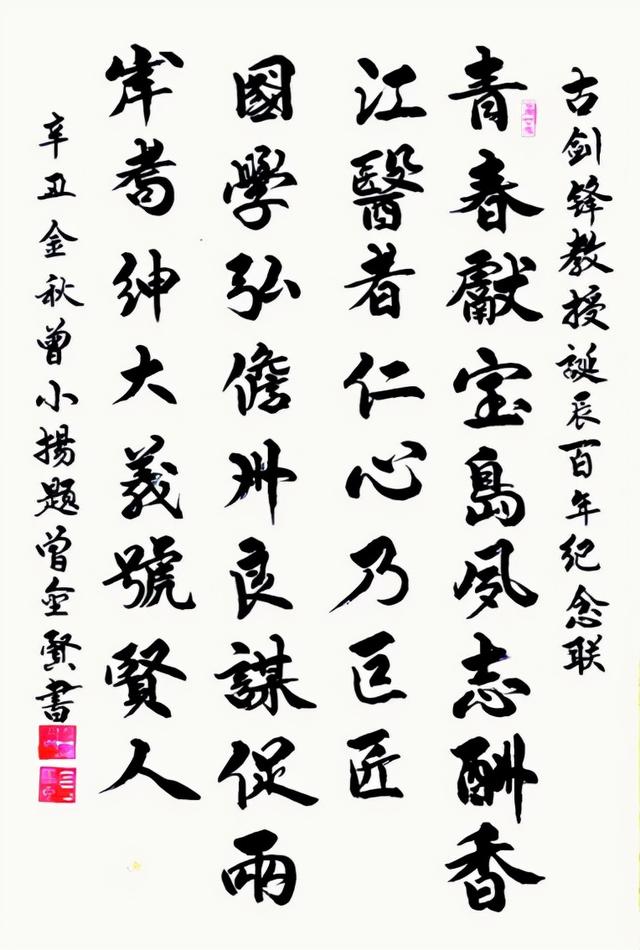 古剑锋教授誕辰一百年紀念联
青春獻宝島夙志酬香
江醫者仁心乃巨匠
國學弘儋州良謀促兩
岸耆紳大義號賢人
辛丑金秋曾小揚題曾金賢書